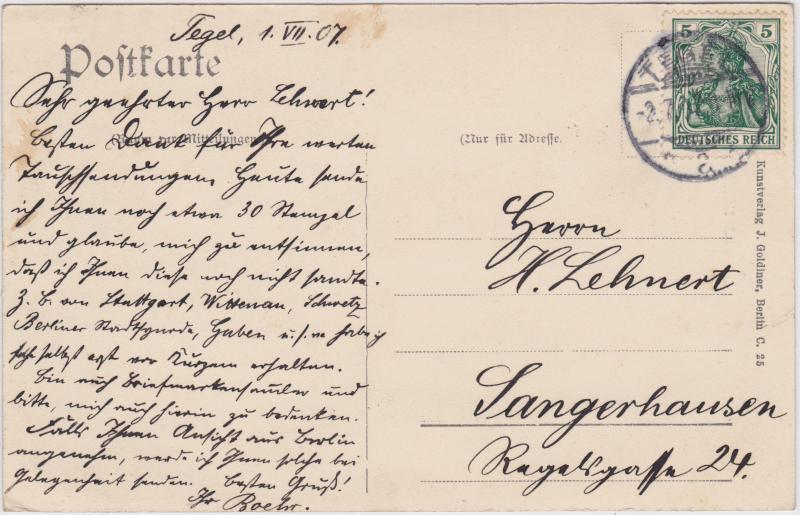 Tegel, 1. VII. 07.
Postkarte
Sehr geehrter Herr Lehnert!
(Raum zur Mitteilungen)
besten Dank für Ihre werten
Tauschsendungen, Heute sende
ich Ihnen noch etwa 30 Stempel
und glaube, mich zu entsinnen,
daß ich Ihnen diese noch nicht sandte.
Z. B. von Stuttgart, Wittenau, Schwetz
Berliner Stadtsynode, Guben u.s.w habe ich
selbst erst vor Kurzem erhalten.
Bin auch Briefmarkensammler und
bitte, mich auch hierin zu bedenken.
Falls Ihnen Ansicht aus Berlin
angenehm, werde ich Ihnen solche bei
Gelegenheit senden. Besten Gruß!
Ihr Boehr.
(Nur für Adresse.
Herrn
H. Lehnert
Sangerhausen
Regelsgasse 24.
5 5
DEUTSCHES REICH
TEGEL
Kunstverlag J. Goldiner, Berlin C. 25